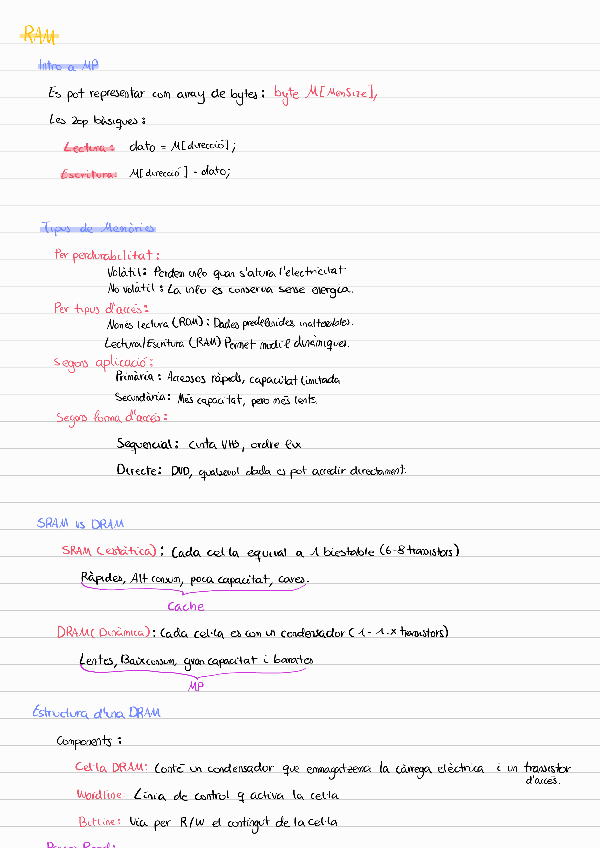 RAM
Intro a MP
Es pot representar com array de bytes: byte M[MemSize];
Les 2op bàsiques:
Lectura: dato = M[direcció];
Escritura: M[direcció] = dato;
Tipus de Memòries
Per perdurabilitat:
Volàtil: Perden info quan s'atura l'electricitat
No volàtil: La info es conserva sense energia.
Per tipus d'accés:
Només lectura (ROM): Dades predefinides inalterables.
Lectura/Escritura (RAM) Permet modif dinàmiques.
Segons aplicació:
Primària: Accessos ràpids, capacitat limitada
Secundària: Més capacitat, però més lents.
Segons forma d'accés:
Sequencial: cinta VHS, ordre fix
Directe: DVD, qualsevol dada es pot accedir directament.
SRAM vs DRAM
SRAM (estàtica): Cada cel·la equival a 1 biestable (6-8 transistors)
Ràpides, Alt consum, poca capacitat, cares.
Cache
DRAM (Dinàmica): Cada cel·la es com un condensador (1-1.x transistors)
Lentes, Baix consum, gran capacitat i barates
MP
Estructura d'una DRAM
Components:
Cel·la DRAM: Conté un condensador que emmagatzema la càrrega elèctrica i un transistor
d'accés.
Wordline: Línia de control q activa la cel·la
Bitline: Via per R/W el contingut de la cel·la